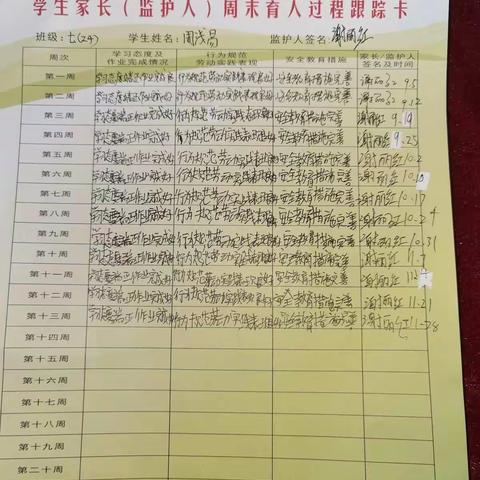 学生家长（监护人）周末育人过程跟踪卡
班级：七(24) 学生姓名：周浅易 监护人签名：谢丽红
周次 学习态度及作业完成情况 行为规范劳动实践表现 安全教育措施 家长/监护人签名及时间
第一周 学习态度端正作业完成好 行为规范劳动实践表现良好 安全教育措施完善 谢丽红 9.5
第二周 学习态度端正作业完成好 行为规范劳动实践表现良好 安全教育措施完善 谢丽红 9.12
第三周 学习态度端正作业完成好 行为规范劳动实践表现良好 安全教育措施完善 谢丽红 9.19
第四周 学习态度端正作业完成好 行为规范劳动实践表现良好 安全教育措施完善 谢丽红 9.25
第五周 学习态度端正作业完成好 行为规范劳动实践表现良好 安全教育措施完善 谢丽红 10.2
第六周 学习态度端正作业完成好 行为规范劳动实践表现良好 安全教育措施完善 谢丽红 10.10
第七周 学习态度端正作业完成好 行为规范劳动实践表现良好 安全教育措施完善 谢丽红 10.17
第八周 学习态度端正作业完成好 行为规范劳动实践表现良好 安全教育措施完善 谢丽红 10.24
第九周 学习态度端正作业完成好 行为规范劳动实践表现良好 安全教育措施完善 谢丽红 10.31
第十周 学习态度端正作业完成好 行为规范劳动实践表现良好 安全教育措施完善 谢丽红 11.7
第十一周 学习态度端正作业完成好 行为规范劳动实践表现良好 安全教育措施完善 谢丽红
第十二周 学习态度端正作业完成好 行为规范劳动实践表现良好 安全教育措施完善 谢丽红 11.21
第十三周 学习态度端正作业完成好 行为规范劳动实践表现良好 安全教育措施完善 谢丽红 11.28
第十四周
第十五周
第十六周
第十七周
第十八周
第十九周
第二十周